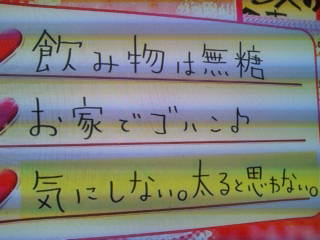 飲み物は無糖
お家でゴハン♪
気にしない。太ると思わない。